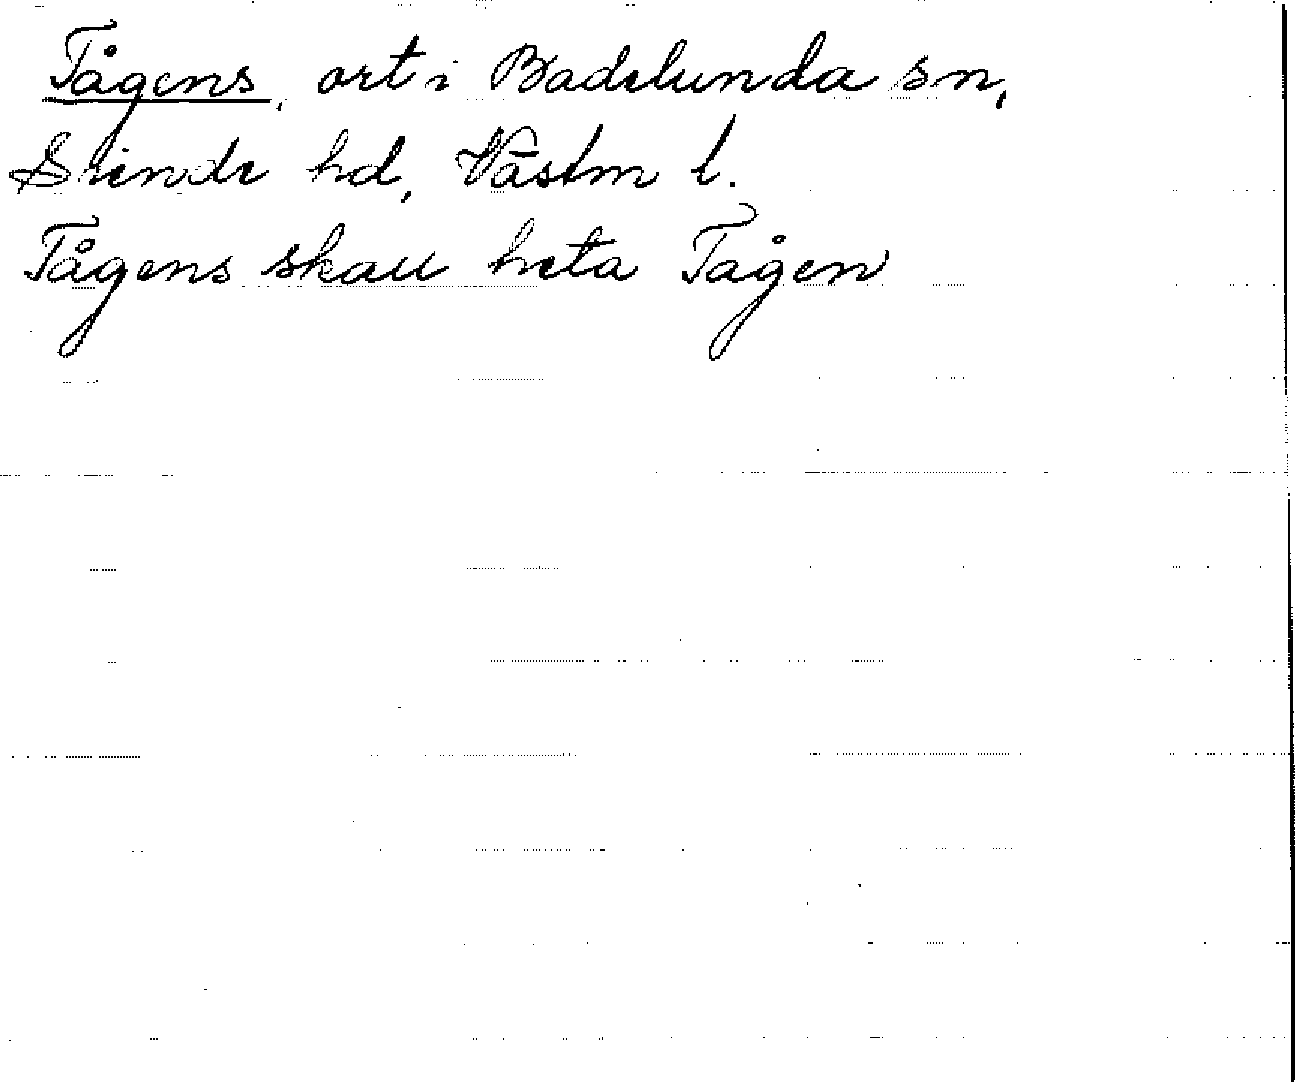 Tågens, ort i Badelunda sn,
Siende hd, Västm l.
Tågens skall heta Tågen